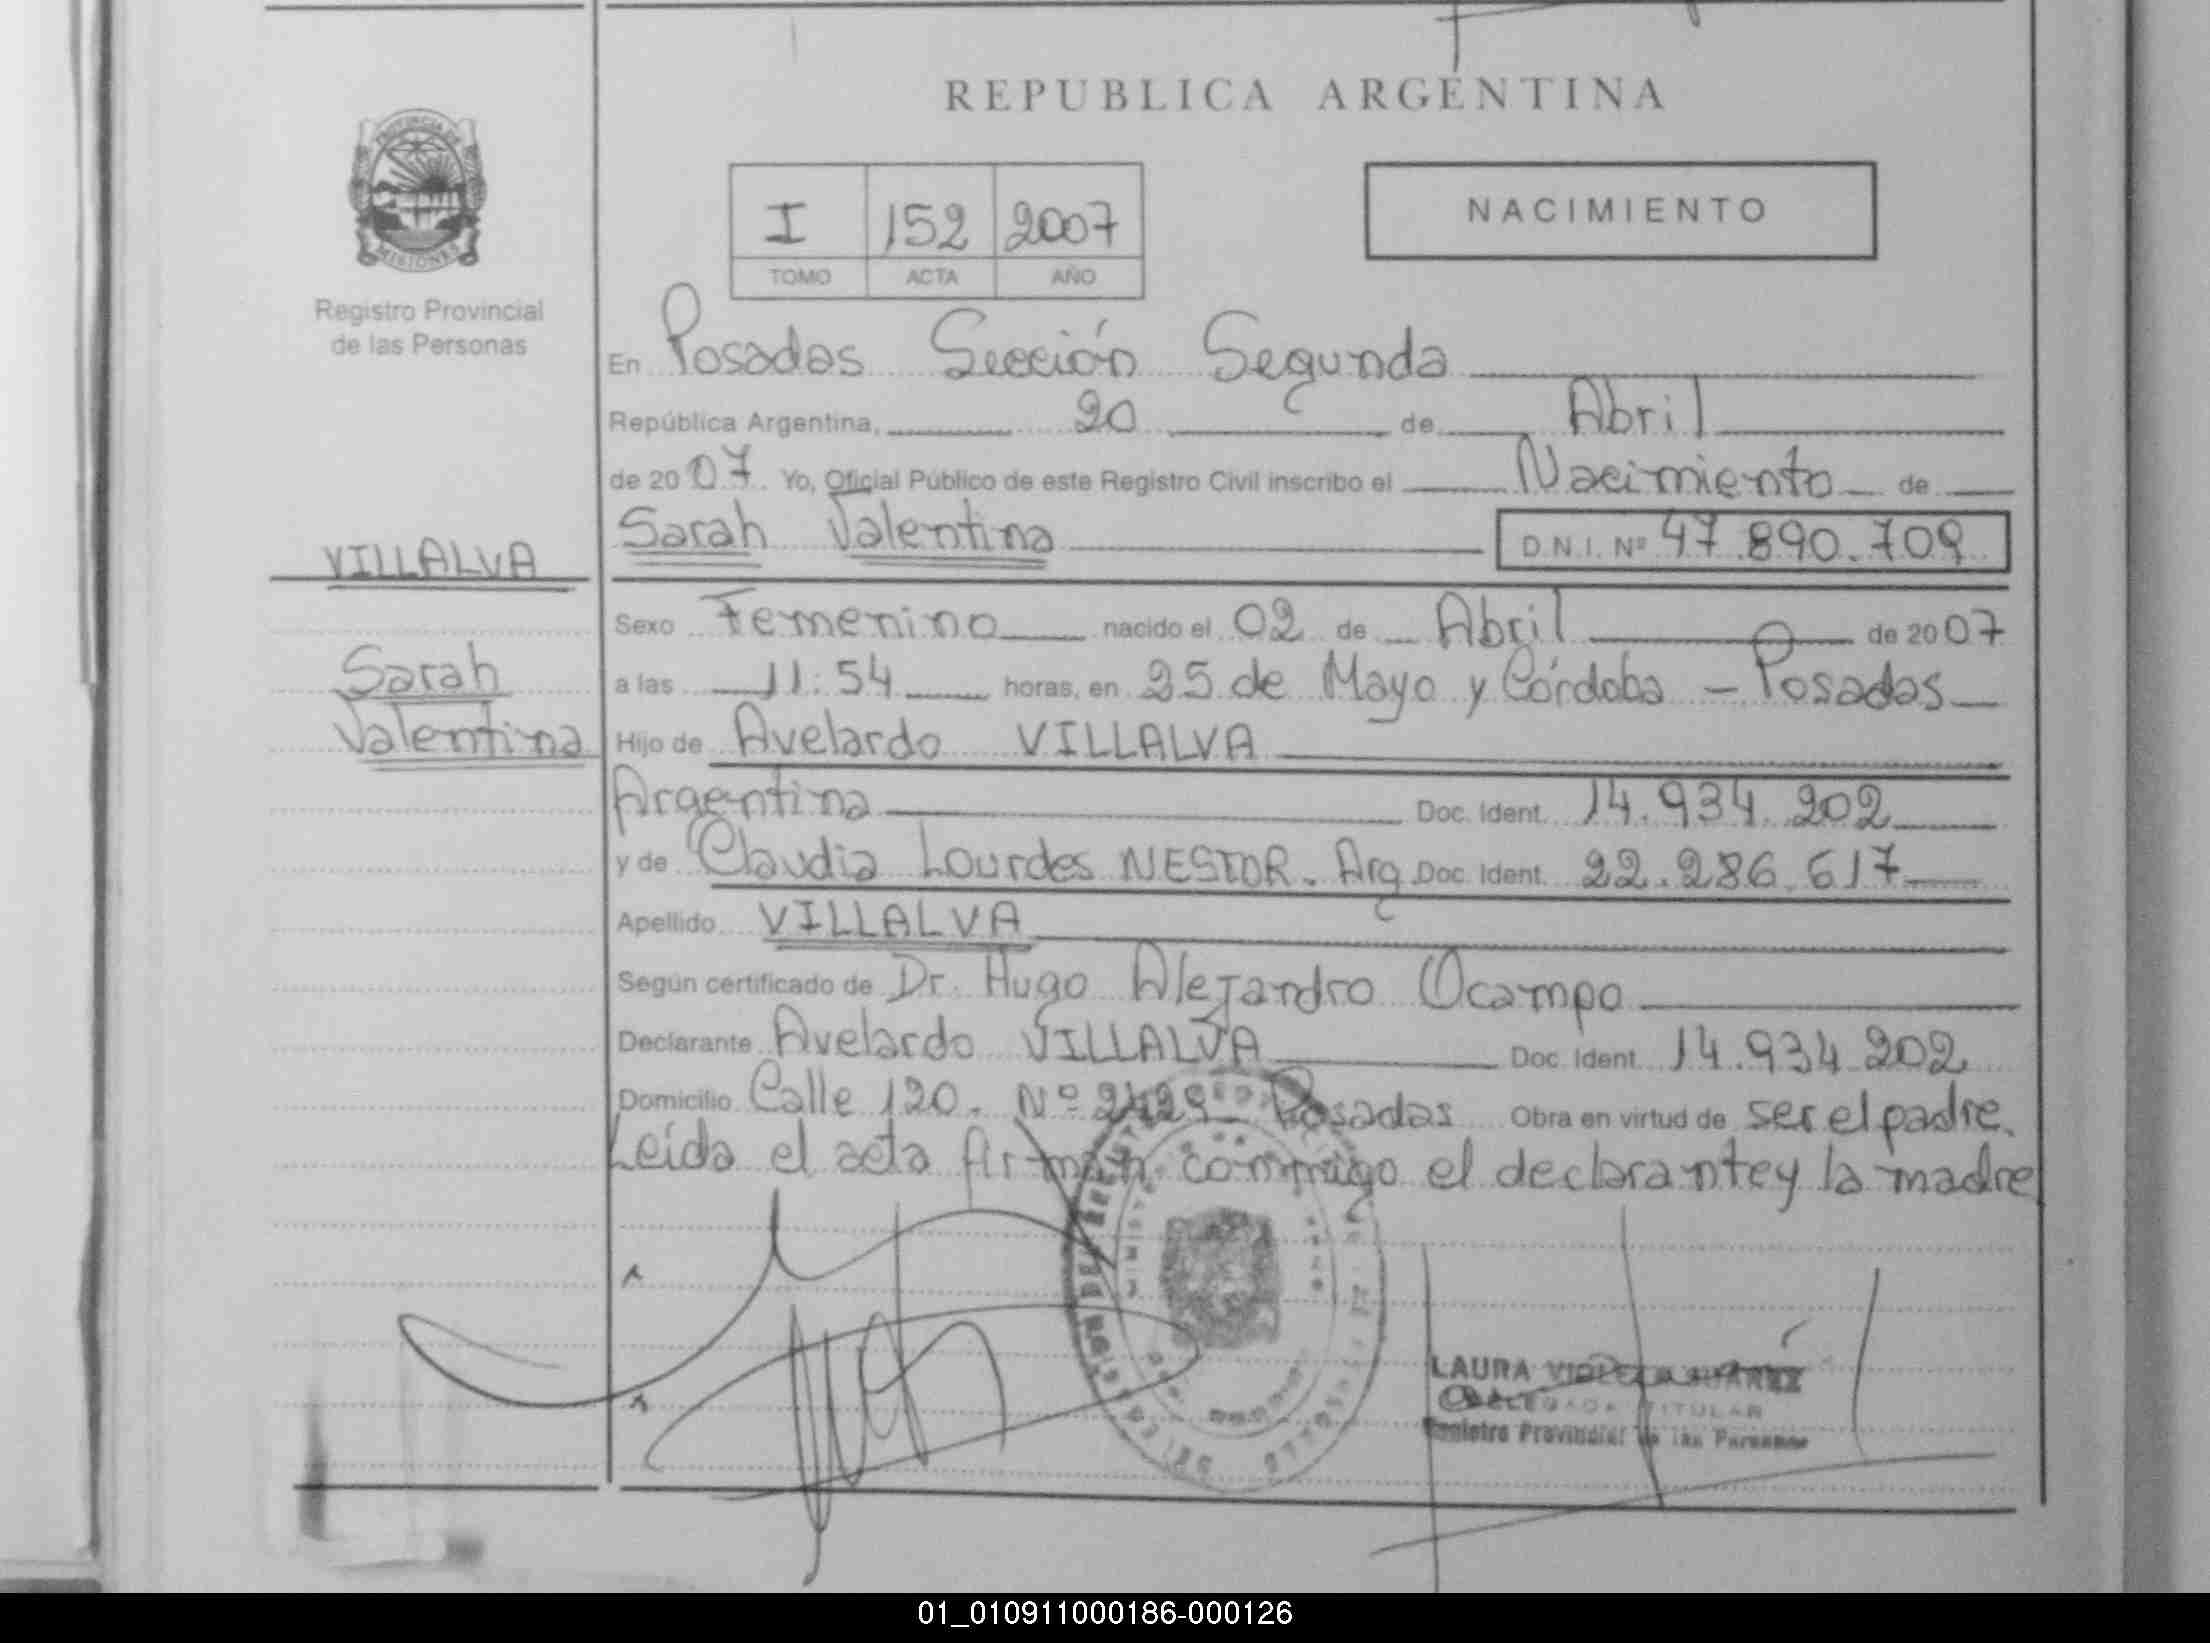 REPUBLICA ARGENTINA
PROVINCIA DE
MISIONES
Registro Provincial
de las Personas
I 152 2007
TOMO ACTA AÑO
NACIMIENTO
En Posadas Sección Segunda
República Argentina, 20 de Abril
de 2007. Yo, Oficial Público de este Registro Civil inscribo el Nacimiento de
Sarah Valentina D.N.I. Nº 47.890.709
VILLALVA
Sarah
Valentina
Sexo Femenino nacido el 02 de Abril de 2007
a las 11:54 horas, en 25 de Mayo y Córdoba - Posadas
Hijo de Avelardo VILLALVA
Argentina Doc. Ident. 14.934.202
y de Claudia Lourdes NESTOR. Arg Doc. Ident. 22.286.617
Apellido VILLALVA
Según certificado de Dr. Hugo Alejandro Ocampo
Declarante Avelardo VILLALVA Doc. Ident. 14.934.202
Domicilio Calle 120. Nº Posadas Obra en virtud de ser el padre.
Leída el acta firman conmigo el declarante y la madre
LAURA
DELEGADA TITULAR
Registro Provincial de las Personas
01_010911000186-000126